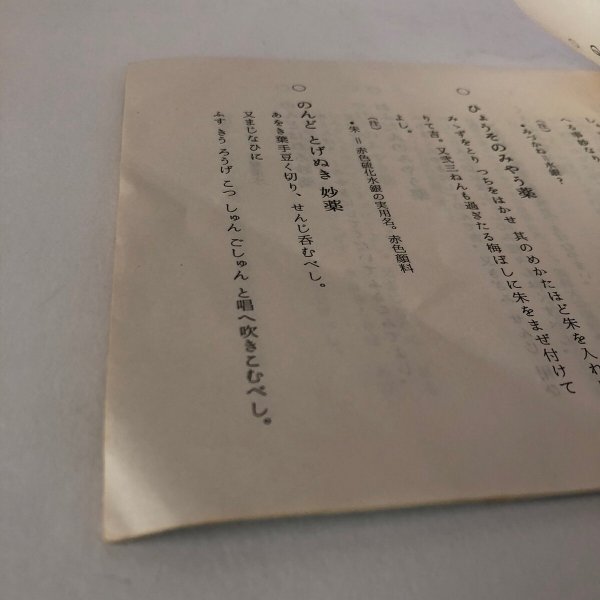 し、
へる事妙なり
(注)
・みづかね=水銀?
○ ひょうそのみやう薬
みゝずをとり つちをはかせ 其のめかたほど朱を入れ
りて吉。又弐三ねんも過ぎたる梅ぼしに朱をまぜ付けて
よし。
(注)
・朱=赤色硫化水銀の実用名。赤色顔料
○ のんど とげぬき 妙薬
あをき葉手豆く切り、せんじ呑むべし。
又まじなひに
ふす きう ろうげ こつ しゅん ごしゅん と唱へ吹きこむべし。